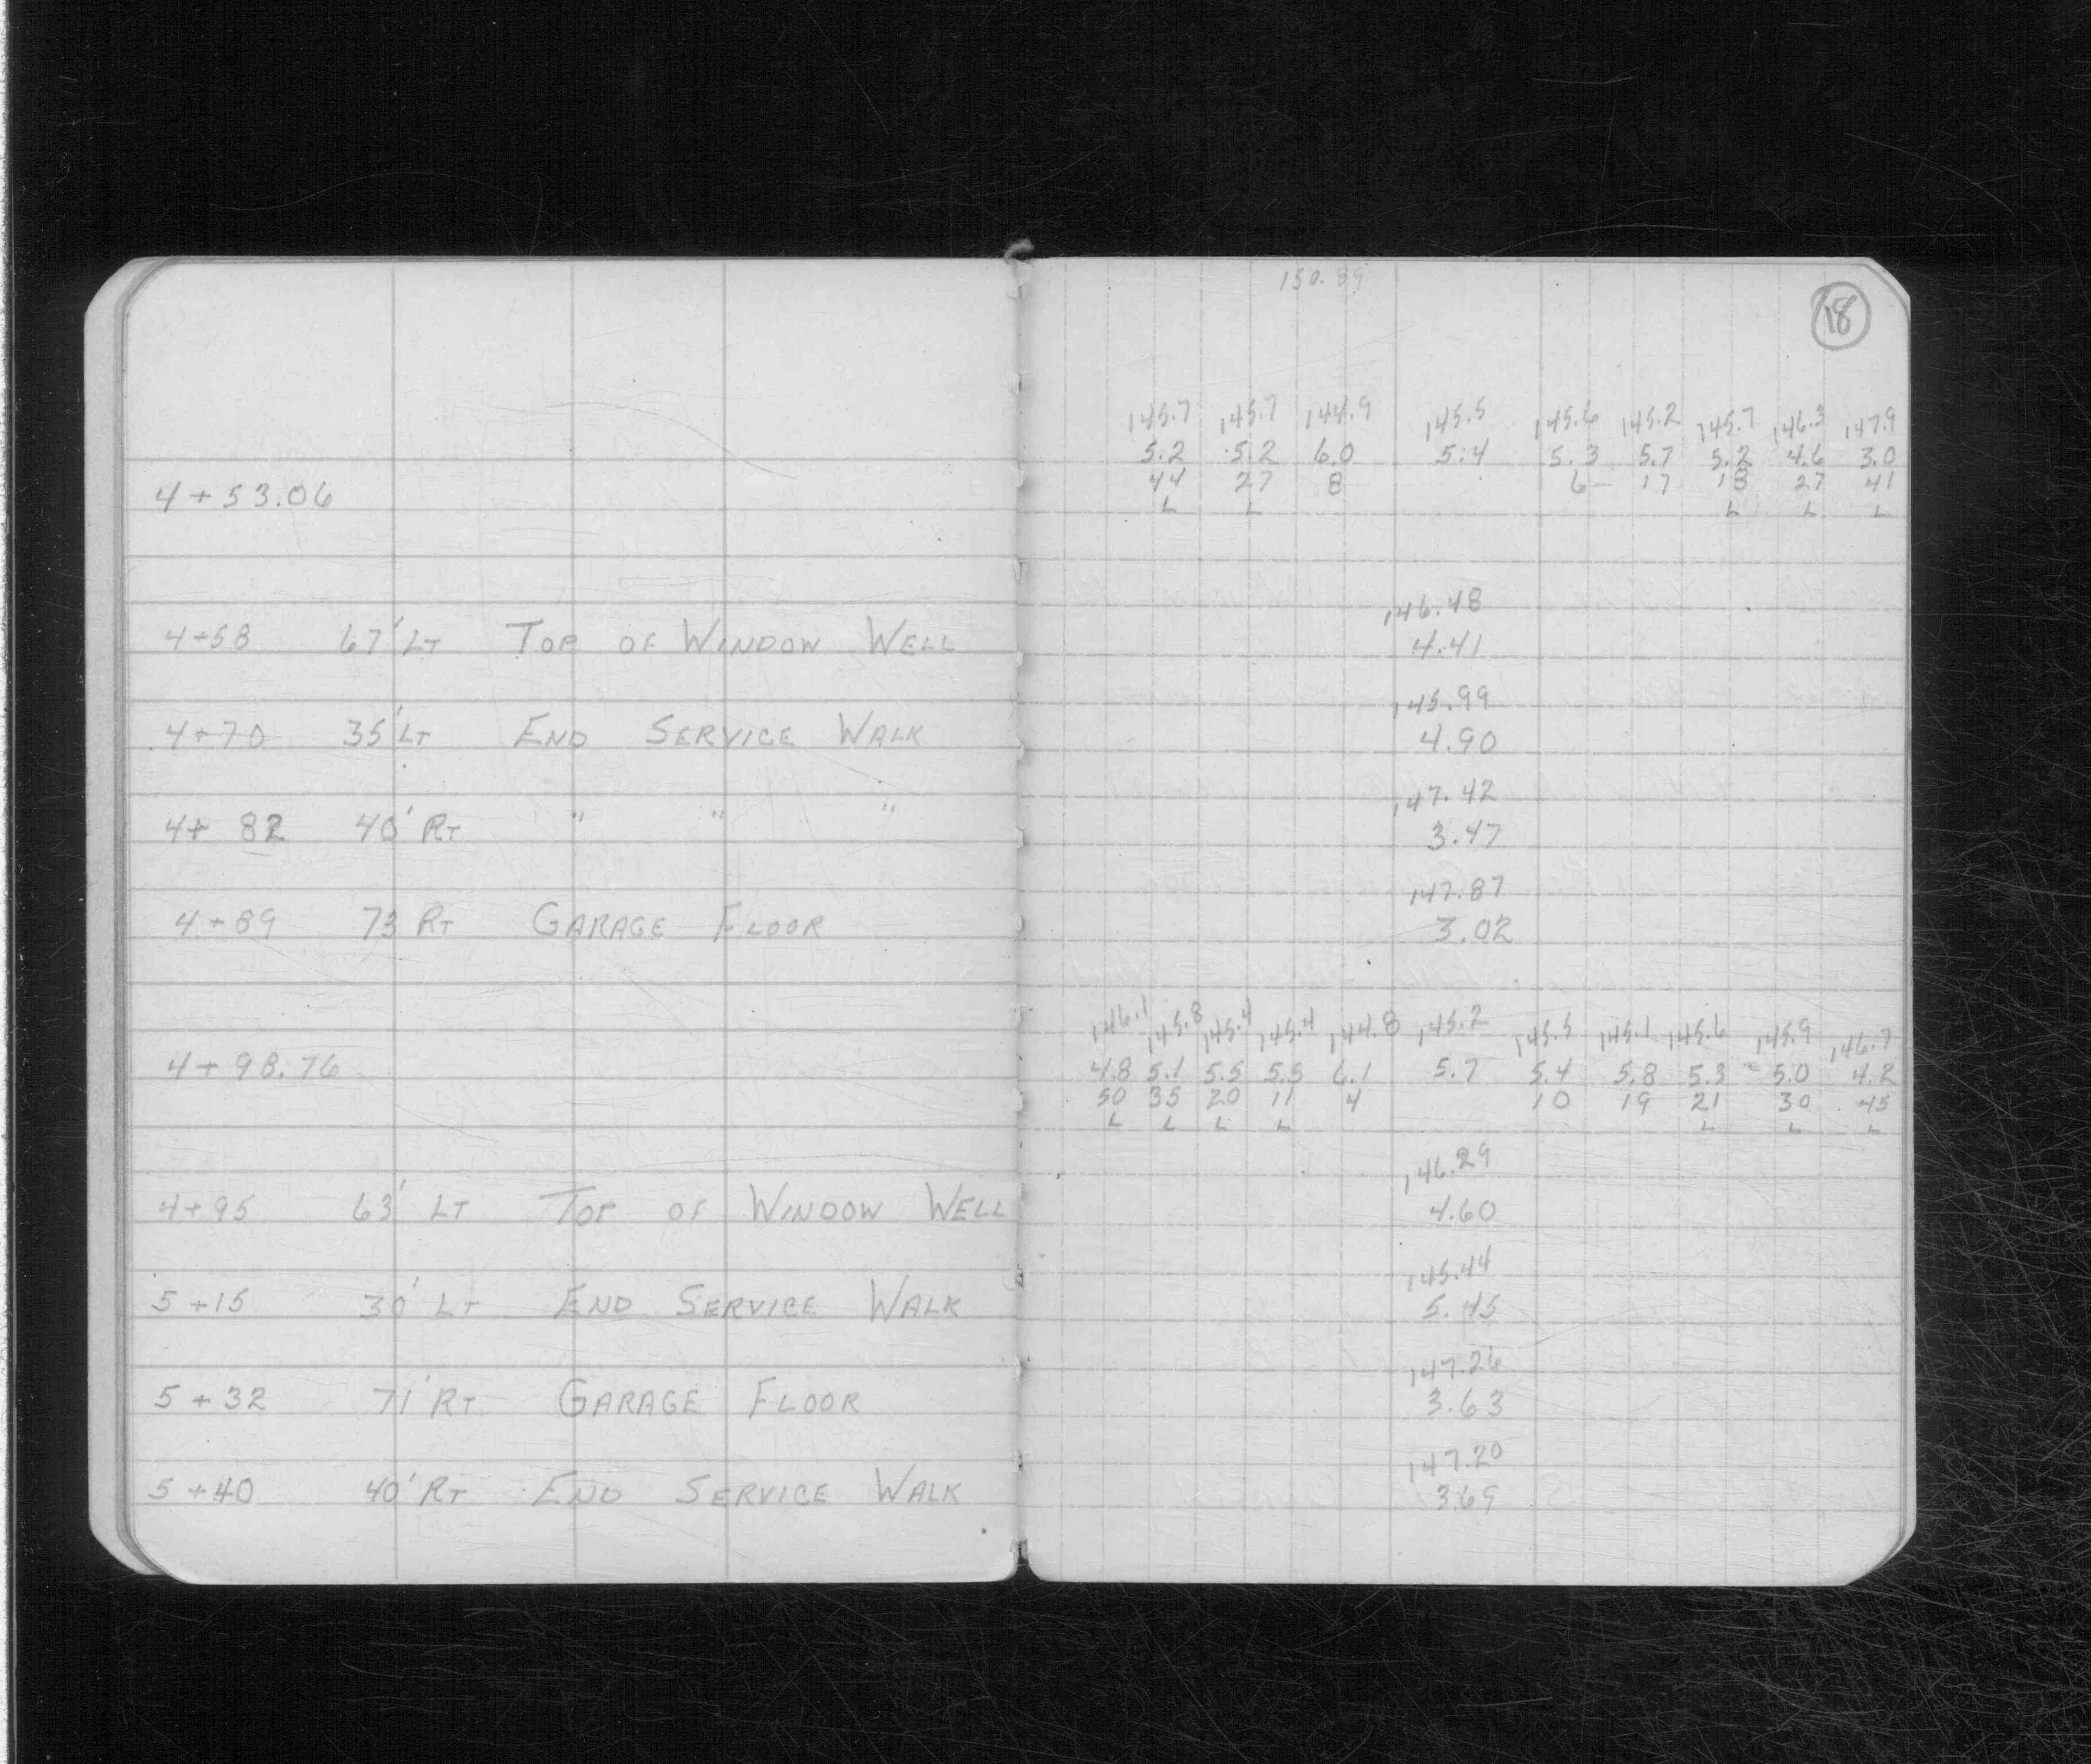 150.89
18
145.7 145.7 144.9 145.5 145.6 145.2 145.7 146.3 147.9
5.2 5.2 6.0 5.4 5.3 5.7 5.2 4.6 3.0
4+53.06 44 27 8 6 17 18 27 41
L L L L L
146.48
4+58 67' LT TOP OF WINDOW WELL 4.41
145.99
4+70 35' LT END SERVICE WALK 4.90
147.42
4+82 40' RT " " " 3.47
147.87
4+89 73 RT GARAGE FLOOR 3.02
146.1 145.8 145.4 145.4 144.8 145.2 145.5 145.1 145.6 145.9 146.7
4+98.76 4.8 5.1 5.5 5.5 6.1 5.7 5.4 5.8 5.3 5.0 4.2
50 35 20 11 4 10 19 21 30 45
L L L L L L L
146.29
4+95 63' LT TOP OF WINDOW WELL 4.60
145.44
5+15 30' LT END SERVICE WALK 5.45
147.26
5+32 71' RT GARAGE FLOOR 3.63
147.20
5+40 40' RT END SERVICE WALK 3.69